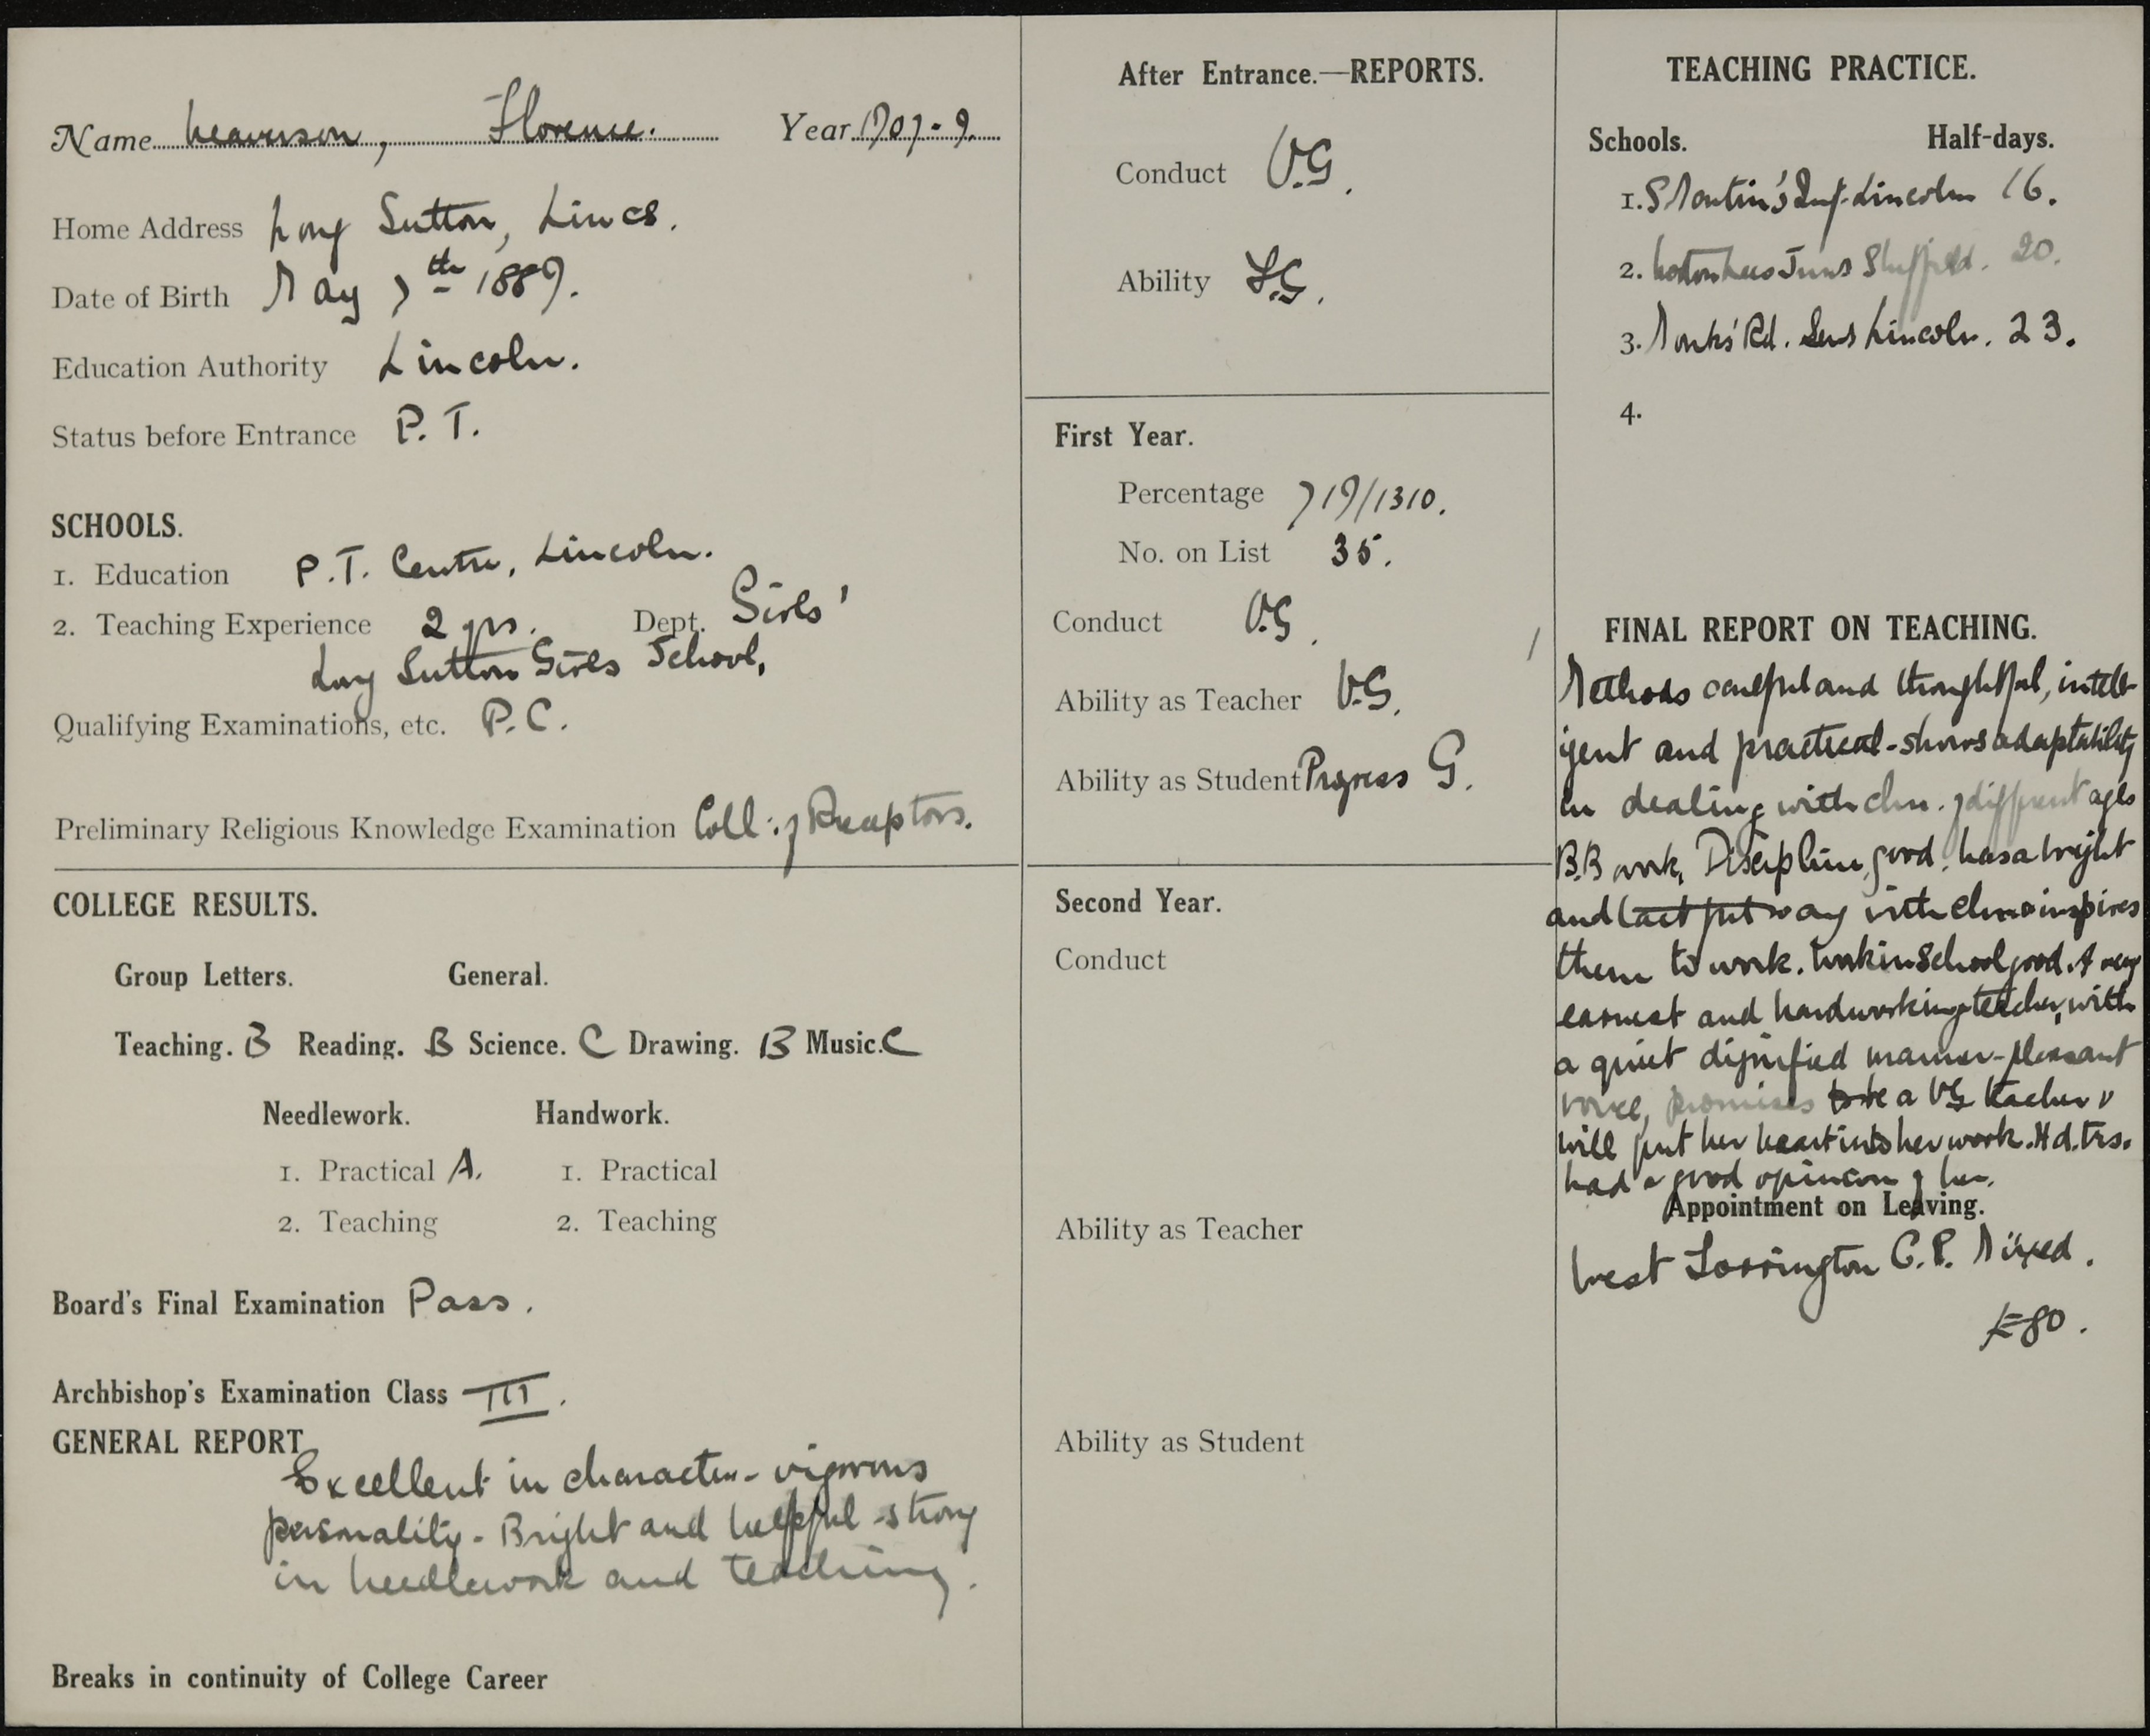 Name Leaverson, Florence. Year 1907-9.
Home Address Long Sutton, Lincs.
Date of Birth May 7th 1889.
Education Authority Lincoln.
Status before Entrance P.T.
SCHOOLS.
1. Education P.T. Centre, Lincoln.
2. Teaching Experience 2 yrs. Dept. Girls'
Long Sutton Girls School,
Qualifying Examinations, etc. P.C.
Preliminary Religious Knowledge Examination Coll: of Preceptors.
COLLEGE RESULTS.
Group Letters. General.
Teaching. B Reading. B Science. C Drawing. B Music. C
Needlework. Handwork.
1. Practical A. 1. Practical
2. Teaching 2. Teaching
Board's Final Examination Pass.
Archbishop's Examination Class III.
GENERAL REPORT
Excellent in character - vigorous
personality - Bright and helpful - strong
in needlework and teaching.
Breaks in continuity of College Career
After Entrance.—REPORTS.
Conduct V.G.
Ability F.G.
First Year.
Percentage 719/1310.
No. on List 35.
Conduct V.G.
Ability as Teacher V.G.
Ability as Student Progress G.
Second Year.
Conduct
Ability as Teacher
Ability as Student
TEACHING PRACTICE.
Schools. Half-days.
1. S Martin's Inf. Lincoln 16.
2. Juns Sheffield. 20.
3. Monks' Rd. Sens Lincoln. 23.
4.
FINAL REPORT ON TEACHING.
Methods careful and thoughtful, intell-
igent and practical - shows adaptability
in dealing with chn. of different ages
B.B work, Discipline, good, has a bright
and tactful way with chn & inspires
them to work. Work in School good. A very
earnest and hardworking teacher, with
a quiet dignified manner - pleasant
voice, promises to be a VG teacher
will put her heart into her work. Hd. trs.
had a good opinion of her.
Appointment on Leaving.
West Torrington C.P. Mixed.
£80.